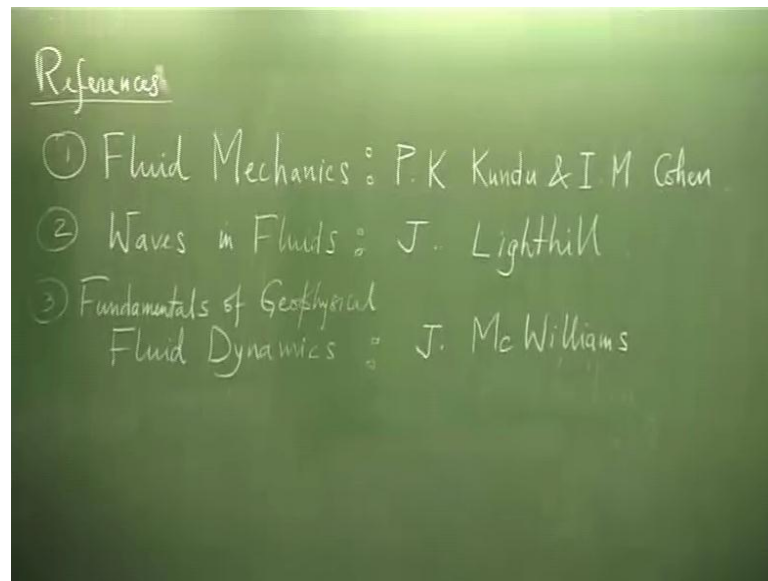 References
① Fluid Mechanics : P.K Kundu & I.M Cohen
② Waves in Fluids : J. Lighthill
③ Fundamentals of Geophysical
Fluid Dynamics : J. McWilliams